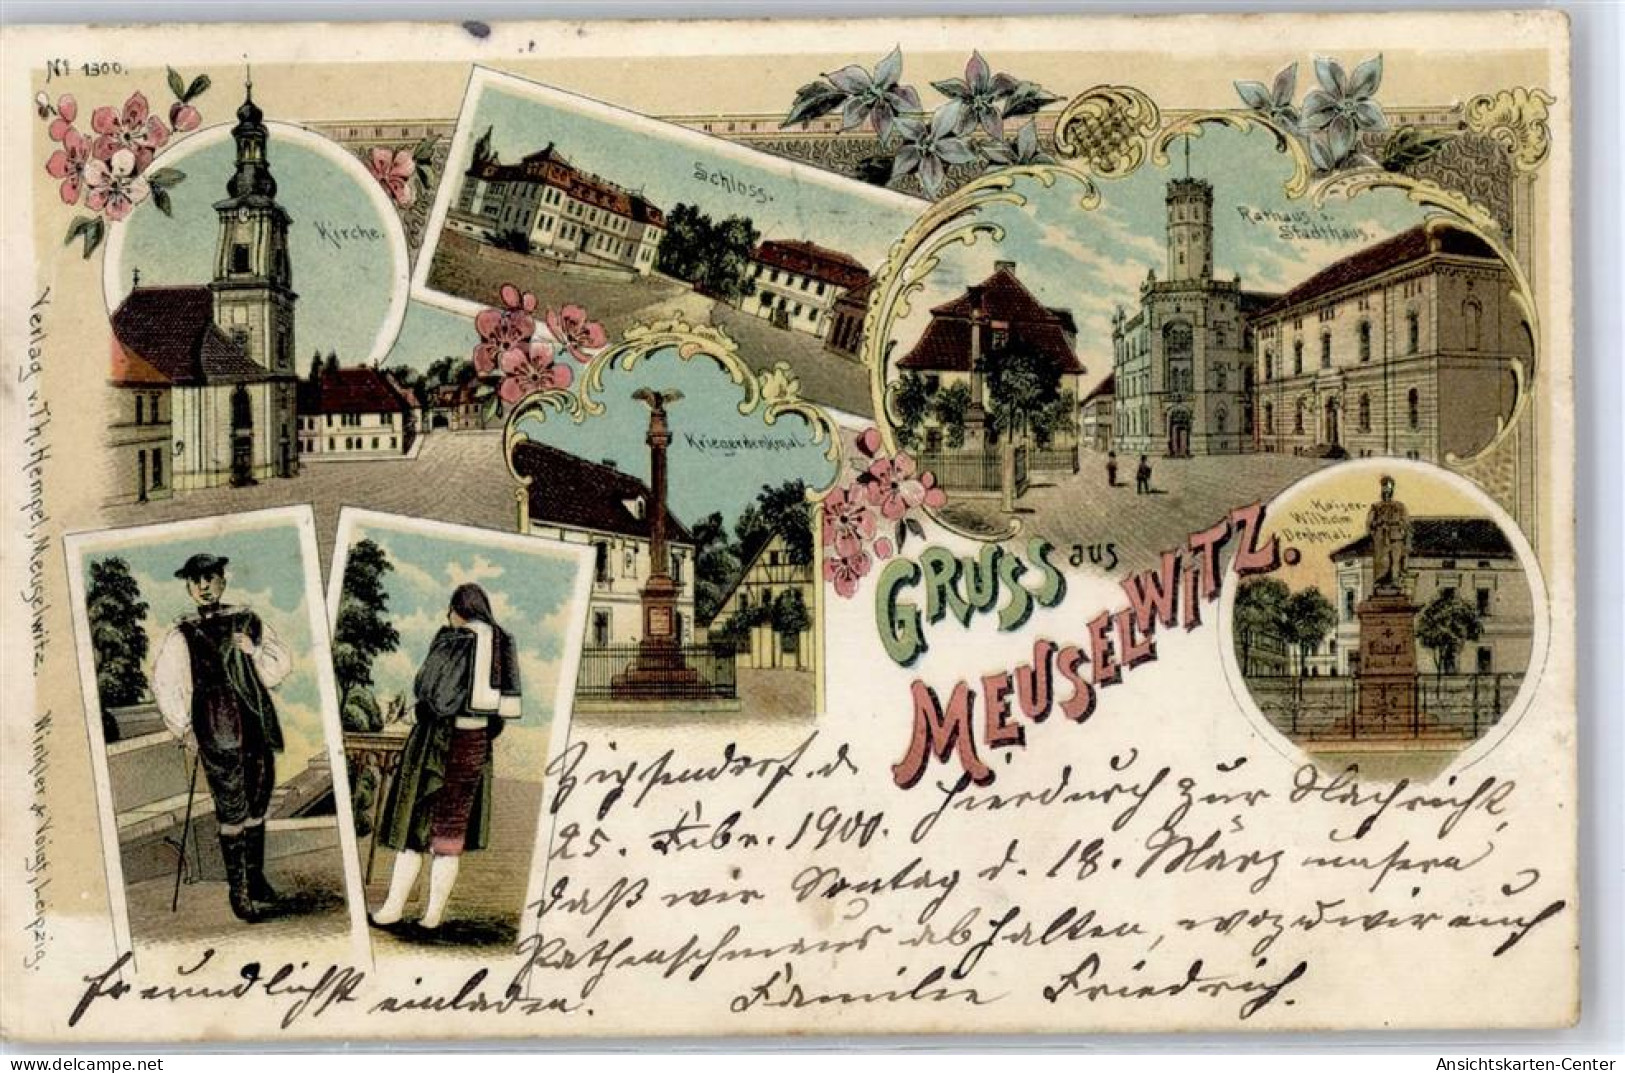 Nº 1300.
Kirche.
Schloss.
Rathaus u.
Stadthaus.
Kriegerdenkmal
Kaiser-
Wilhelm
Denkmal.
GRUSS aus
MEUSELWITZ.
Verlag v. Th. Hempel, Meuselwitz. Winkler & Voigt, Leipzig.
Zipsendorf. d.
25. Febr. 1900. hierdurch zur Nachricht,
daß wir Sonntag d. 18. März unsern
Pathenschmaus abhalten, wozu wir euch
freundlichst einladen. Familie Friedrich.
fd-ak-39487-DH
Ansichtskarten-Center